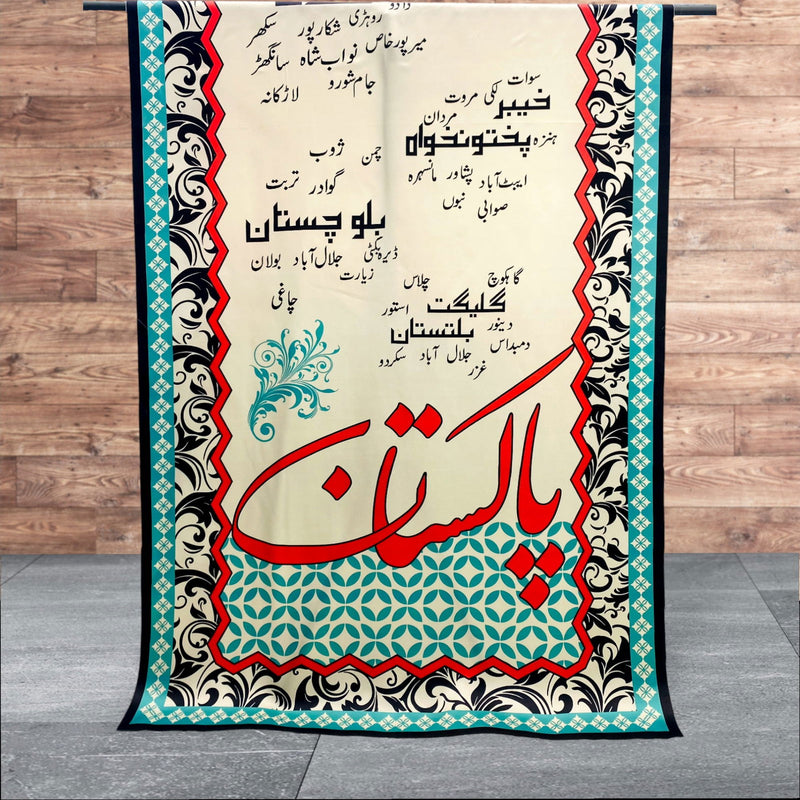 دادو
روہڑی
شکارپور
سکھر
میرپورخاص
نواب شاہ
سانگھڑ
جام شورو
لاڑکانہ
سوات
لکی مروت
خیبر
مردان
پختونخواہ
ہنزہ
ایبٹ آباد
پشاور
مانسہرہ
صوابی
چمن
ژوب
گوادر
تربت
بلوچستان
ڈیرہ بگٹی
جلال آباد
بولان
زیارت
چاغی
گاہکوچ
چلاس
گلیگت
استور
دینور
بلتستان
دمبداس
جلال آباد
سکردو
غزر
پاکستان